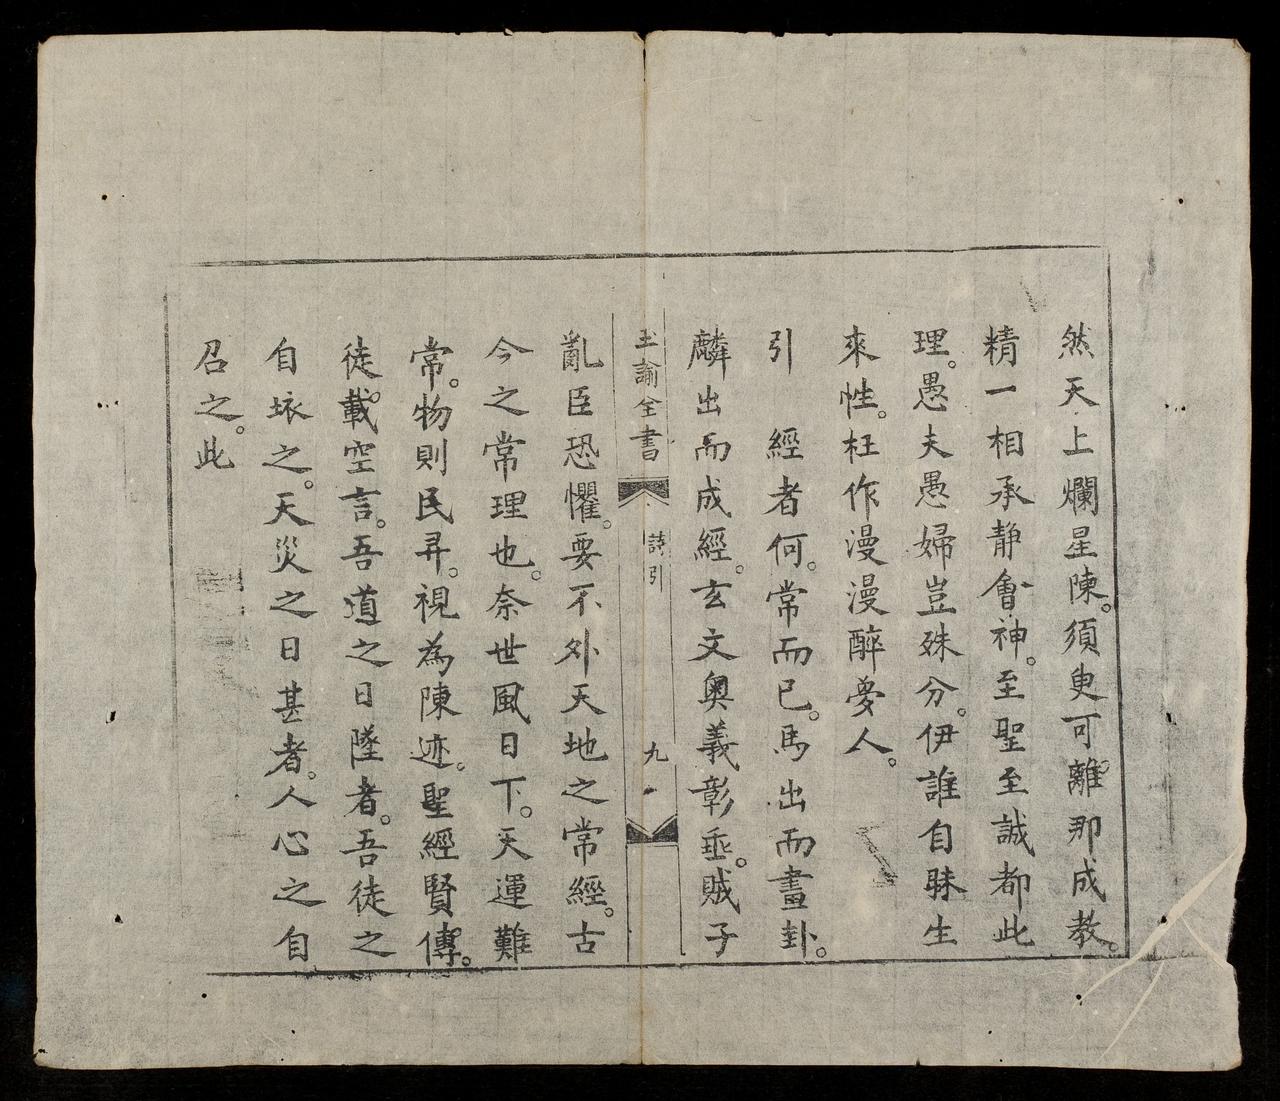 然天上爛星陳。須臾可離。那成教。
精一相承静會神。至聖至誠都此
理。愚夫愚婦豈殊分。伊誰自昧生
來性。枉作漫漫醉夢人。
引　經者何。常而已。馬出而畫卦。
麟出而成經。玄文奥義彰垂。賊子
玉諭全書
詩引
九
亂臣恐懼。要不外天地之常經。古
今之常理也。奈世風日下。天運難
常。物則民彛。視為陳迹。聖經賢傳。
徒載空言。吾道之日墜者。吾徒之
自坏之。天災之日甚者。人心之自
召之。此